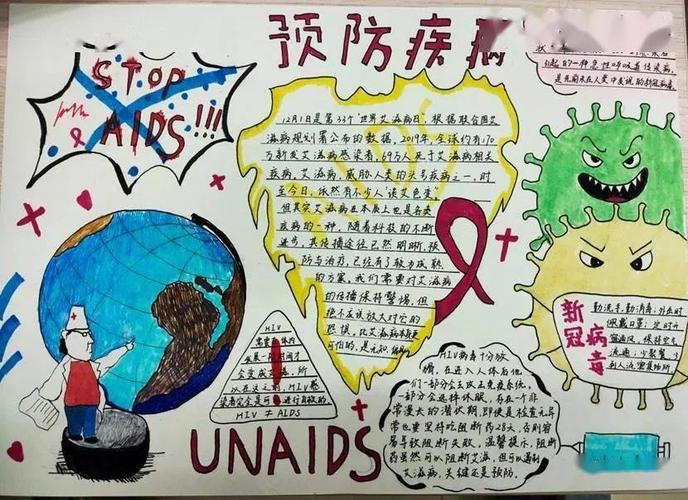 预防疾病
STOP
AIDS!!!
12月1日是第33个"世界艾滋病日",根据联合国艾
滋病规划署公布的数据,2019年,全球约有170
万新发艾滋病感染者,69万人死于艾滋病相关
疾病,艾滋病,威胁人类的头号疾病之一,时
至今日,依然有不少人"谈艾色变"
但其实艾滋病在本质上也是各类
疾病的一种,随着科技的不断
进步,其传播途径已然明晰,预
防与治疗,已经有了较为成熟
的方案,我们需要对艾滋病
的传播保持警惕,但
绝不应该放大对它的
恐惧,比艾滋病本身更
可怕的,是无知、
起的一种急性呼吸道传染病,
是先前未在人类中发现的新冠病毒
新冠病毒
勤洗手,勤消毒;外出时
佩戴口罩;定时开
窗通风,保持空气
流通;少聚餐,少
HIV
HIV ≠ AIDS
UNAIDS
HIV病毒十分狡
猾,在进入人体后他
们一部分会去攻击免疫系统,
一部分会选择休眠,存在一个非
常漫大的潜伏期,即使是检查无异
常也要坚持吃阻断药28天,否则容
易导致阻断失败,温馨提示,阻断
药虽然可以阻断艾滋,但可以遏制
艾滋病,关键还是预防.